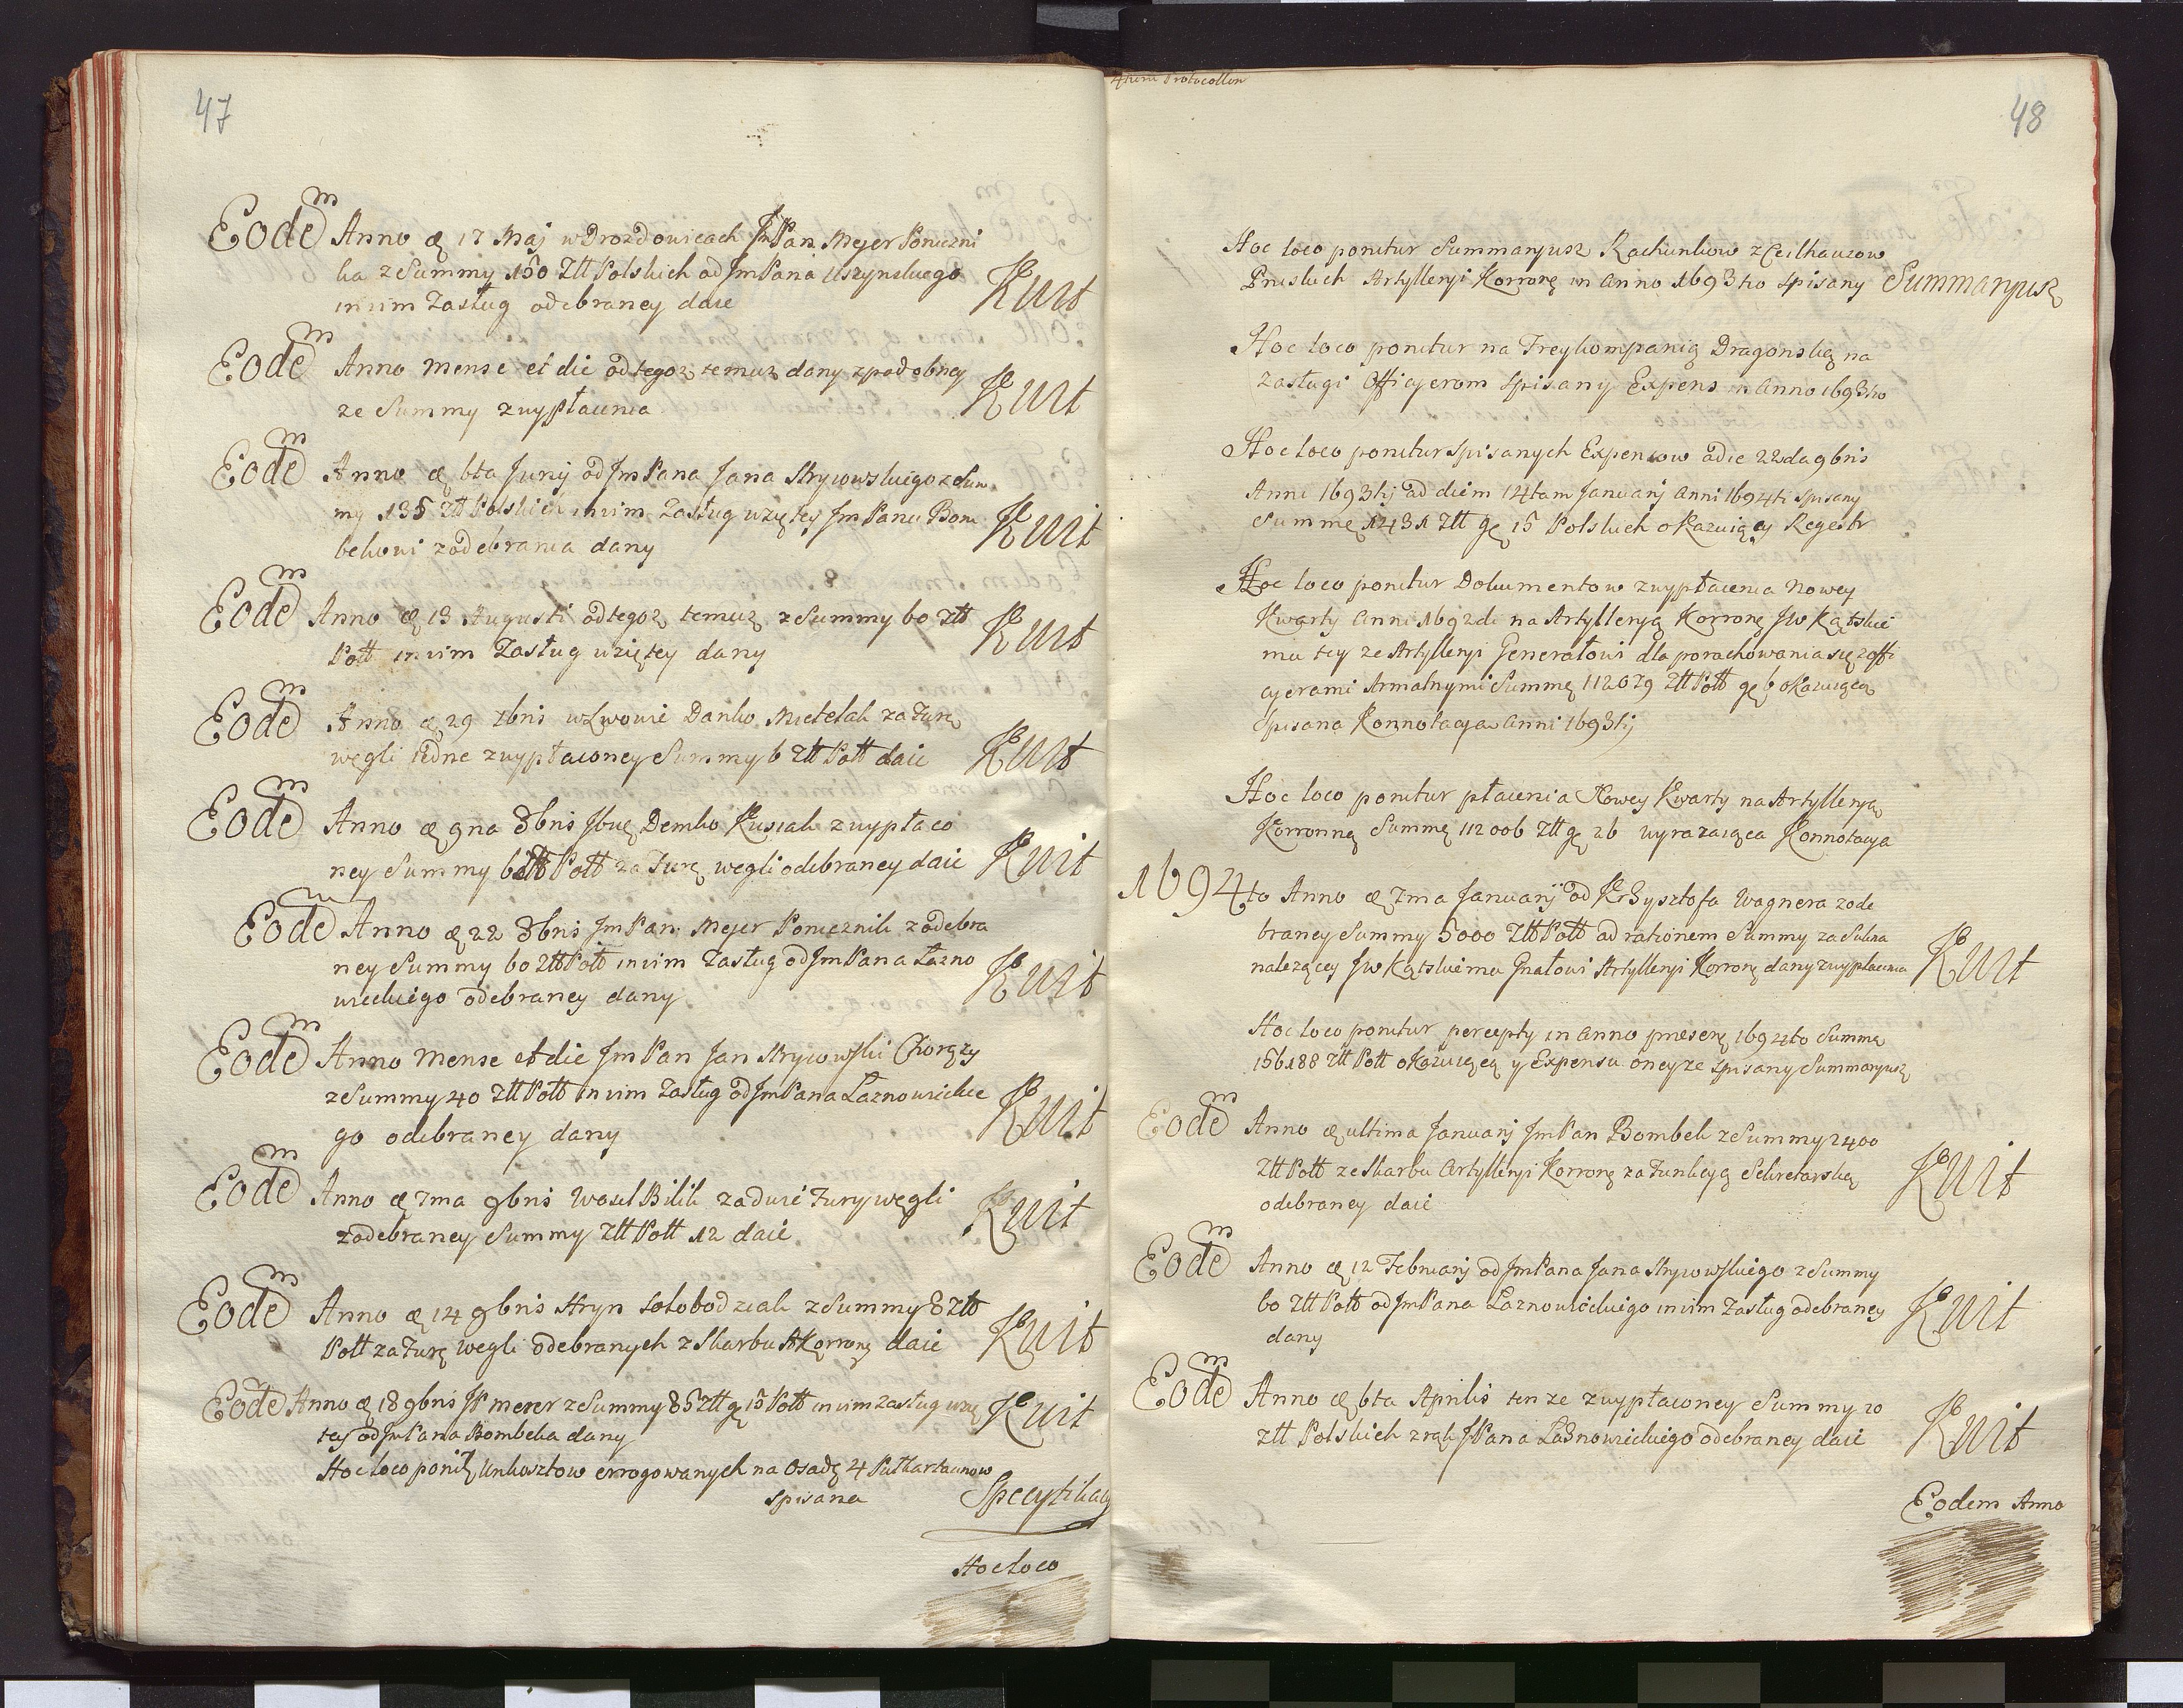 47
Eodem Anno æ 17 Maj w Drozdowicach Jm Pan Mejer Poruczni
ka z Summy 150 Ztt Polskich od Jm Pana Uszynskiego
in vim Zasług odebraney daie Kwit
Eodem Anno Mense et die od tegoż temuz dany z podobney
ze Summy z wypłacenia Kwit
Eodem Anno æ 6ta Junij od Jm Pana Jana Stryiowskiego z Sum
my 135 Ztt Polskich in vim Zasług wziętey Jm Panu Bom
bekowi z odebrania dany Kwit
Eodem Anno æ 13 Augusti od tegoz temuz z Summy 60 Ztt
Pott in vim Zasług wziętey dany Kwit
Eodem Anno æ 29 7bris w Lwowie Danko Mietelak za Furę
węgli iedne z wypłaconey Summy 6 Ztt Pott daie Kwit
Eodem Anno æ 9na 8bris Iwę Demko Kusiak z wypłaco
ney Summy 6 Ztt Pott za Furę węgli odebraney daie Kwit
Eodem Anno æ 22 8bris Jm Pan Mejer Porucznik z odebra
ney Summy 60 Ztt Pott in vim Zasług od Jm Pana Łazno
wieckiego odebraney dany Kwit
Eodem Anno Mense et die Jm Pan Jan Stryiowski Chorąży
z Summy 40 Ztt Pott in vim Zasług od Jm Pana Laznowieckie
go odebraney dany Kwit
Eodem Anno æ 7ma 9bris Wasil Bilik za dwie Fury węgli
z odebraney Summy Ztt Pott 12 daie Kwit
Eodem Anno æ 14 9bris Hryn Sołobodziak z Summy 8 Ztt
Pott za Furę węgli odebranych z Skarbu A Korronę daie Kwit
Eodem Anno æ 18 9bris JP merer z Summy 85 Ztt gę 15 Pott in vim Zasług wzię
tey od Jm Pana Bombeka dany Kwit
Hoc loco ponitz Unkosztow errogowanych na Osadę 4 Putkartaunow
spisana Specyfikacy
Hoc loco
48
Hoc loco ponitur Summaryusz Rachunkow z Ceilhauzow
Pruskich Artylleryi Korronę in Anno 1693tio spisany Summaryusz
Hoc loco ponitur na Freykompanią Dragonską na
zasługi Officyerom spisany Expens in Anno 1693tio
Hoc loco ponitur spisanych Expensow a die 22da 9bris
Anni 1693tij ad diem 14tam Januarij Anni 1694ti spisany
Summę 1431 Ztt gę 15 Polskich okazuiący Regestr
Hoc loco ponitur Dokumentow z wypłacenia Nowey
Kwarty Anni 1692di na Artylleryą Korronę JW Kątskie
mu tey ze Artylleryi Generałowi dla porachowania się z offi
cyerami Armatnymi Summę 112079 Ztt Pott gę 6 okazuiąca
Spisana Konnotacya Anni 1693tij
Hoc loco ponitur płacenia Nowey Kwarty na Artylleryą
Korronną Summę 112006 Ztt gę 26 wyrazaiąca Konnotacya
1694to Anno æ 7ma Januarij od Krzysztofa Wagnera z ode
braney Summy 5000 Ztt Pott ad rationem Summy za Sukna
nalezącey JW Kątskiemu Gnałowi Artylleryi Korronę dany z wypłacenia Kwit
Hoc loco ponitur percepty in Anno præsenę 1694to Summę
156188 Ztt Pott okazuiącą y Expensu oneyze spisany Summaryusz
Eodem Anno æ ultima Januarij Jm Pan Bombek z Summy 2400
Ztt Pott ze Skarbu Artylleryi Korronę za Funkcyą Sekretarską
odebraney daie Kwit
Eodem Anno æ 12 Februarij od Jm Pana Jana Stryiowskiego z Summy
60 Ztt Pott od Jm Pana Laznowieckiego in vim Zasług odebraney
dany Kwit
Eodem Anno æ 6ta Aprilis ten ze z wypłaconey Summy 20
Ztt Polskich z rąk JPana Łaznowieckiego odebraney daie Kwit
Eodem Anno